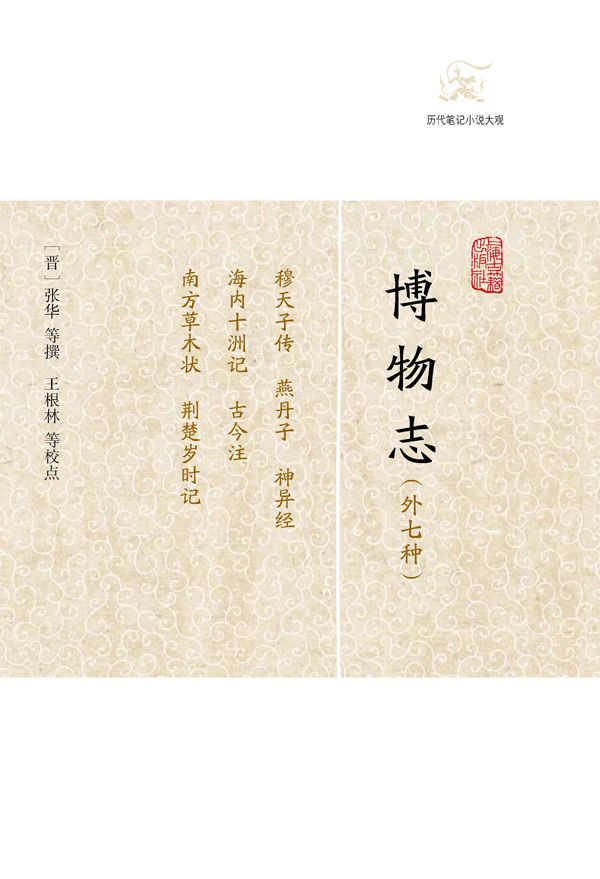 历代笔记小说大观
上海古籍出版社
博物志（外七种）
穆天子传 燕丹子 神异经
海内十洲记 古今注
南方草木状 荆楚岁时记
［晋］张华 等撰 王根林 等校点